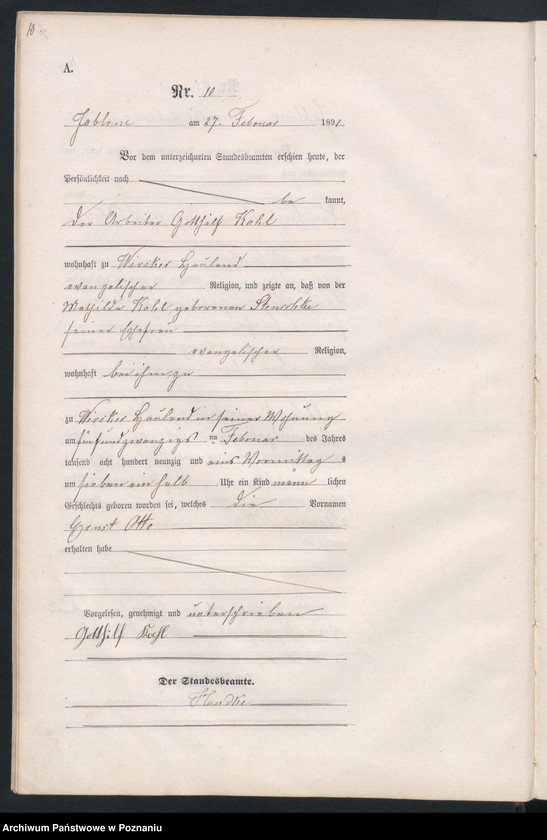 10
A.
Nr. 10
Jablone am 27. Februar 1891
Vor dem unterzeichneten Standesbeamten erschien heute, der
Persönlichkeit nach
be kannt,
der Arbeiter Gotthilf Kahl
wohnhaft zu Wiosker Hauland
evangelischer Religion, und zeigte an, daß von der
Mathilde Kahl geborenen
seiner Ehefrau
evangelischer Religion,
wohnhaft bei ihm
zu Wiosker Hauland in seiner Wohnung
am fünfundzwanzigs ten Februar des Jahres
tausend acht hundert neunzig und eins Vormittag s
um sieben ein halb Uhr ein Kind männ lichen
Geschlechts geboren worden sei, welches die Vornamen
Ernst Otto
erhalten habe
Vorgelesen, genehmigt und unterschrieben
Gotthilf Kahl
Der Standesbeamte.
Handke
Archiwum Państwowe w Poznaniu